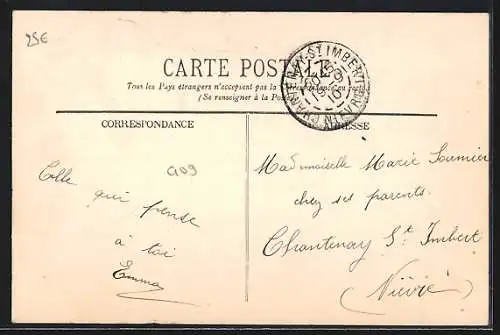 25€
CARTE POSTALE
Tous les Pays étrangers n'acceptent pas la Correspondance au recto
(Se renseigner à la Poste)
CHANTENAY-ST IMBERT
NIEVRE
CORRESPONDANCE
ADRESSE
Celle qui pense
à toi
Emma
G09
Mademoiselle Marie
chez ses parents
Chantenay St Imbert
(Nièvre)